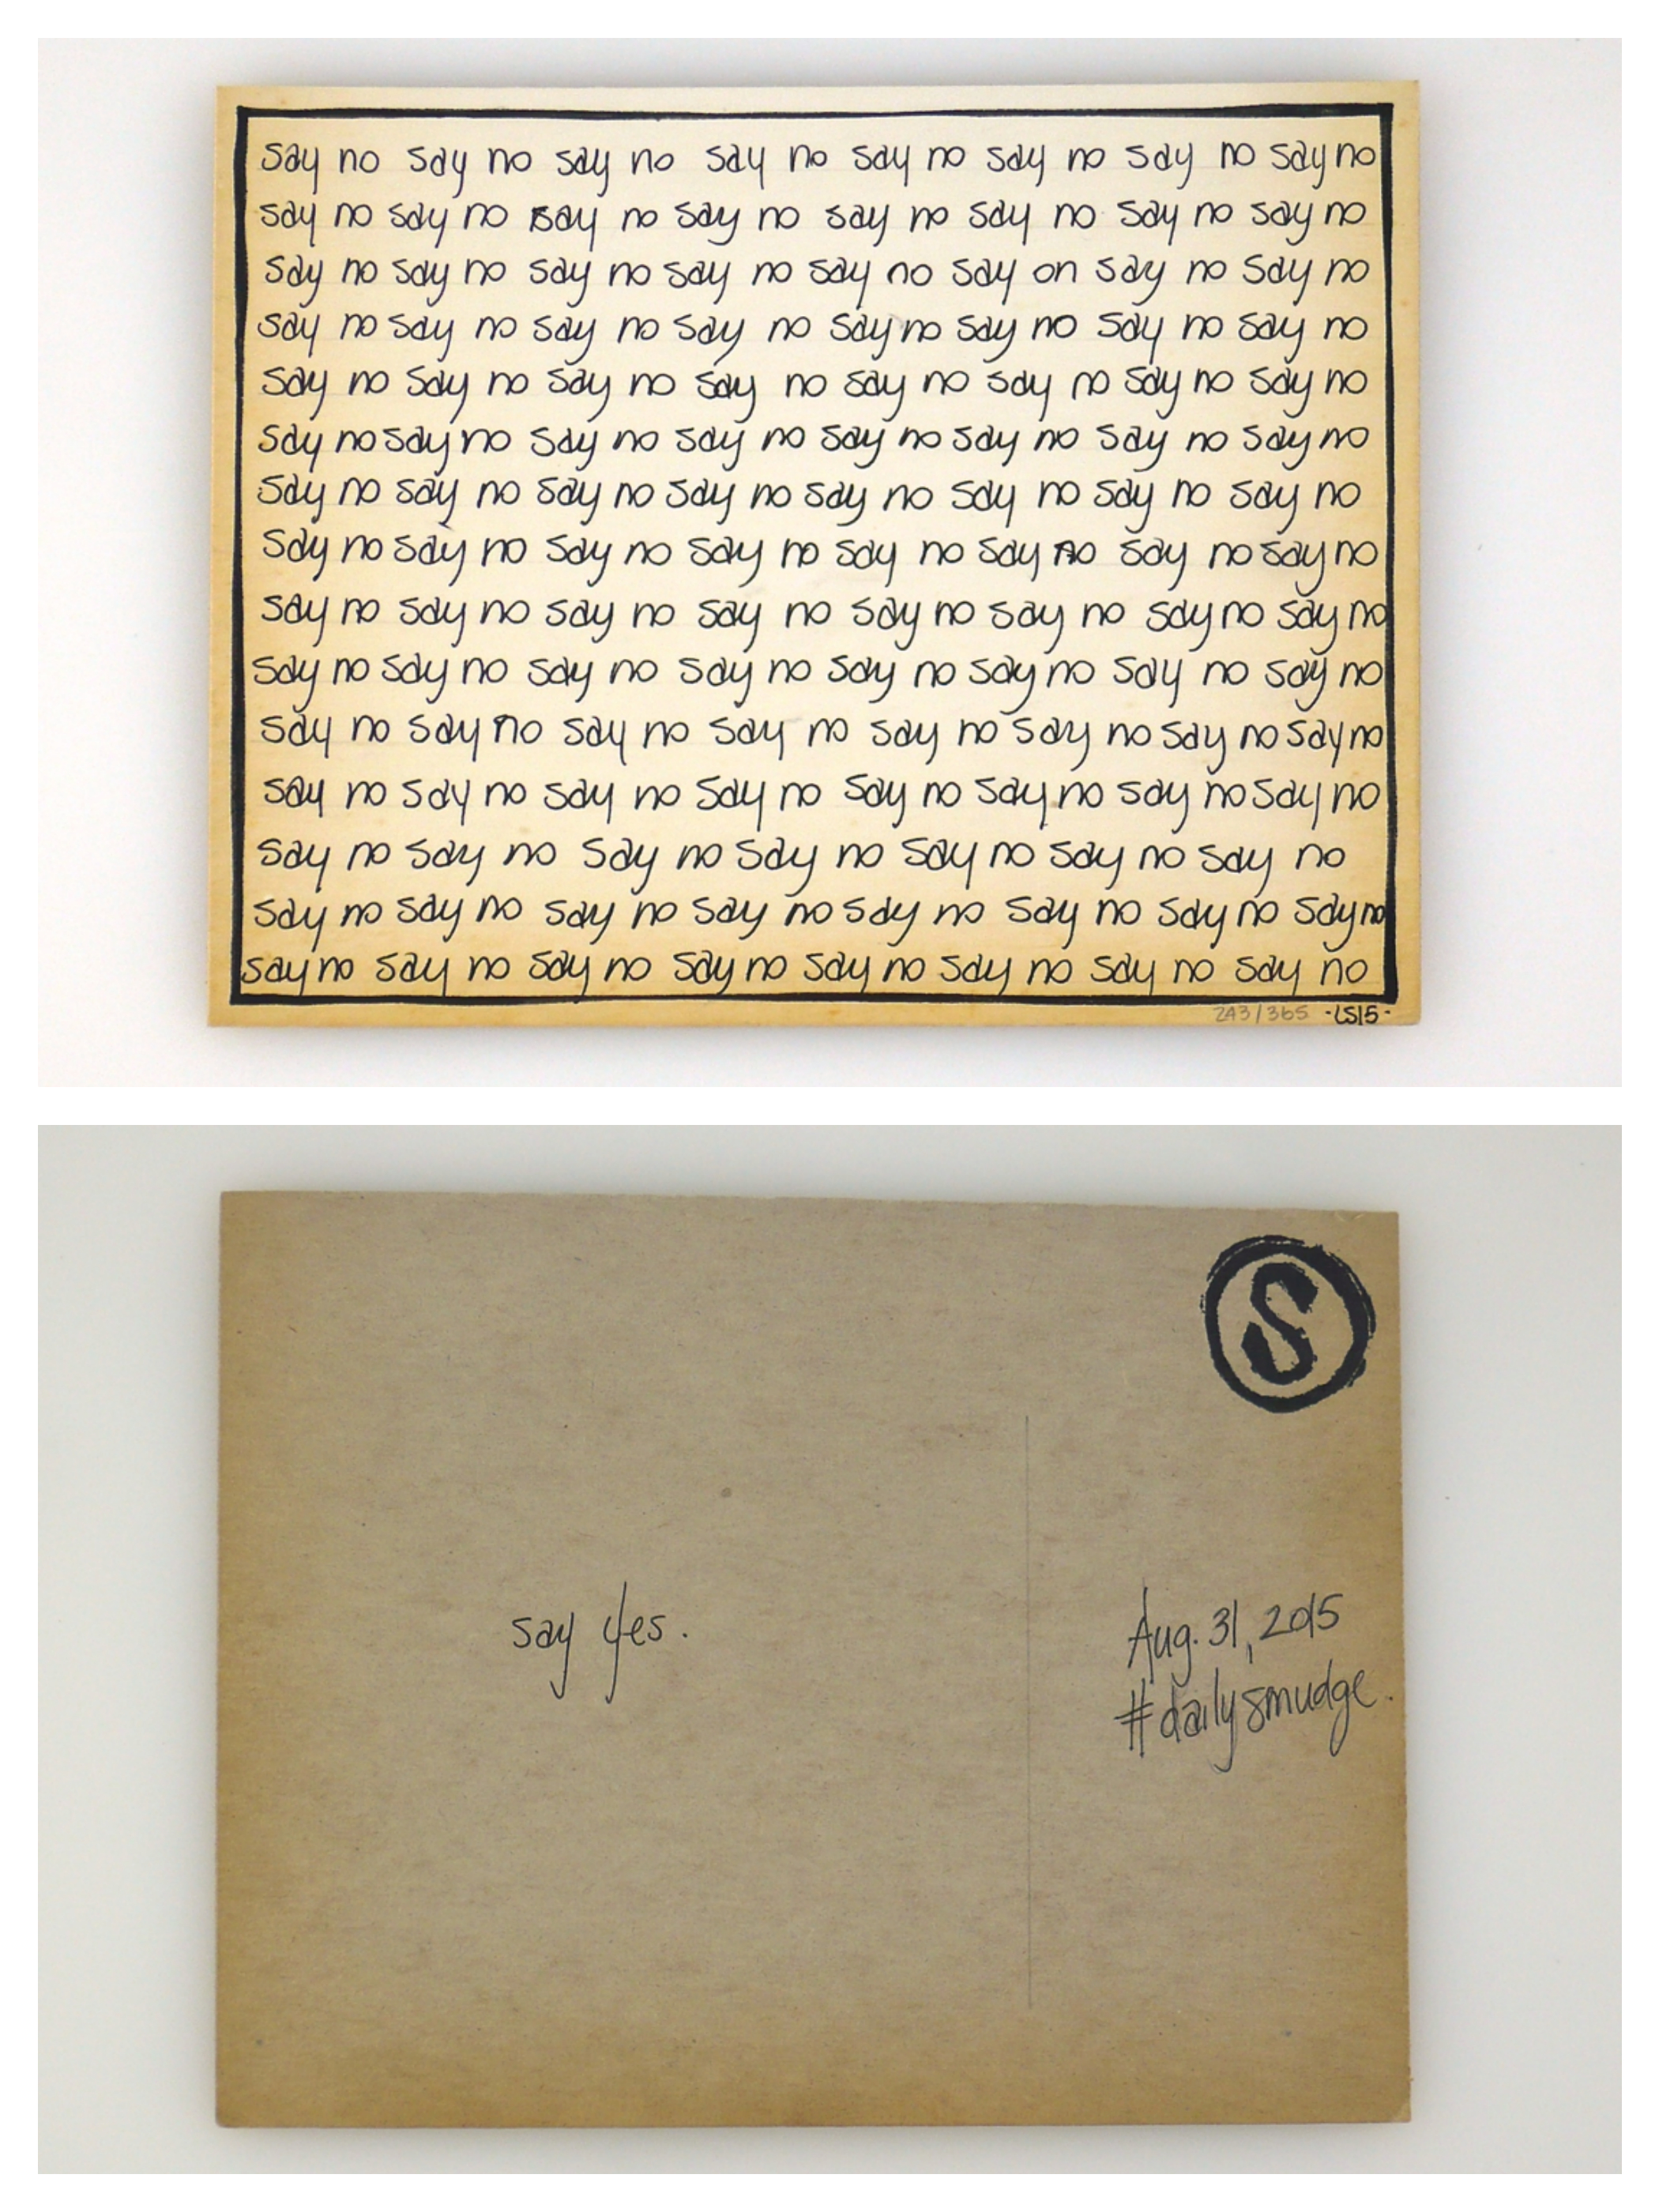 say no say no say no say no say no say no say no say no
say no say no say no say no say no say no say no say no
say no say no say no say no say no say on say no say no
say no say no say no say no say no say no say no say no
say no say no say no say no say no say no say no say no
say no say no say no say no say no say no say no say no
say no say no say no say no say no say no say no say no
say no say no say no say no say no say no say no say no
say no say no say no say no say no say no say no say no
say no say no say no say no say no say no say no say no
say no say no say no say no say no say no say no say no
say no say no say no say no say no say no say no say no
say no say no say no say no say no say no say no
say no say no say no say no say no say no say no say no
say no say no say no say no say no say no say no say no
243/365 -LS15-
S
say yes.
Aug. 31, 2015
#dailysmudge.